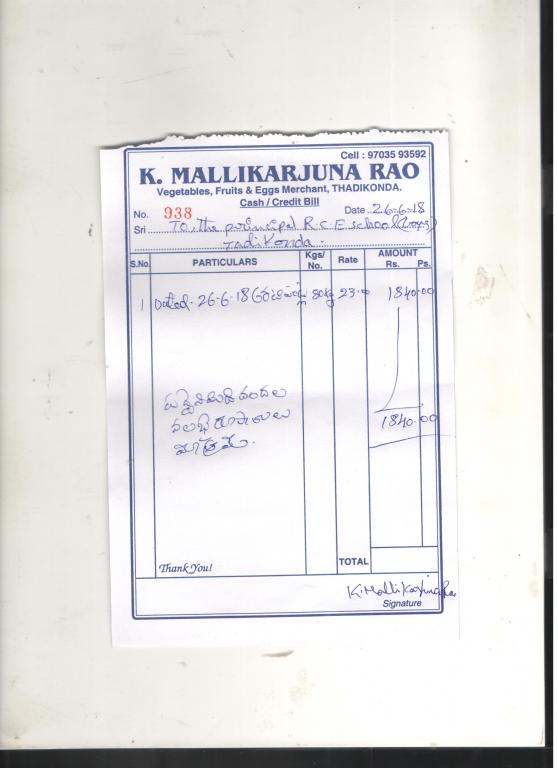 Cell : 97035 93592
K. MALLIKARJUNA RAO
Vegetables, Fruits & Eggs Merchant, THADIKONDA.
Cash / Credit Bill
No. 938 Date 26-6-18
Sri To, the principal R.C.E school (Boys)
Tadikonda.
S.No. PARTICULARS Kgs/ No. Rate AMOUNT Rs. Ps.
1 Dated. 26-6-18 80kg 23-0 1840.00
వందల
నలభై రూపాయలు
మాత్రమే.
1840.00
Thank You! TOTAL
K. Mallikarjuna Rao
Signature